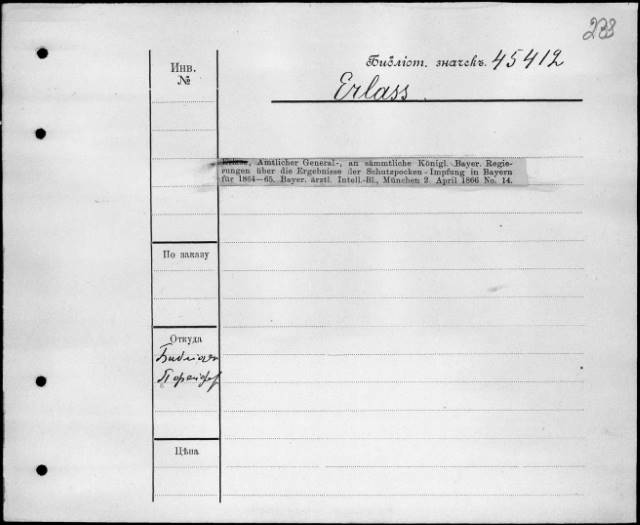 233
Инв.
№
Библіот. значекъ 45412
Erlass
Erlass, Amtlicher General-, an sämmtliche Königl. Bayer. Regie-
rungen über die Ergebnisse der Schutzpocken-Impfung in Bayern
für 1864—65. Bayer. ärztl. Intell.-Bl., München 2. April 1866 No. 14.
По заказу
Откуда
Цѣна